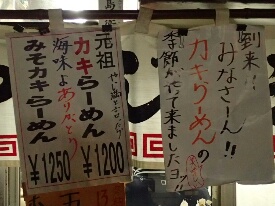 到来!!
みなさーん!!
カキらーめんの
季節がやって来ましたヨ!!
元祖
カキらーめん ¥1200
海味よありがとう
みそカキらーめん ¥1250